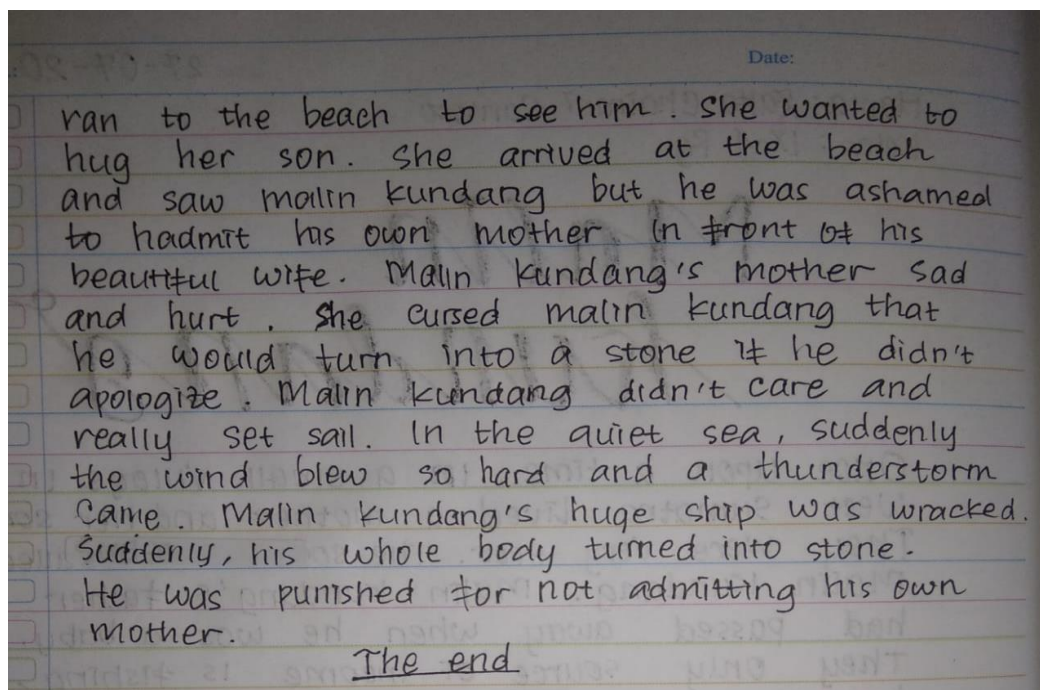 Date:
ran to the beach to see him. She wanted to
hug her son. She arrived at the beach
and saw malin kundang but he was ashamed
to hadmit his own mother in front of his
beautiful wife. Malin kundang's mother sad
and hurt. She cursed malin kundang that
he would turn into a stone if he didn't
apologize. Malin kundang didn't care and
really set sail. In the quiet sea, suddenly
the wind blew so hard and a thunderstorm
Came. Malin kundang's huge ship was wracked.
Suddenly, his whole body turned into stone.
He was punished for not admitting his own
mother.
The end